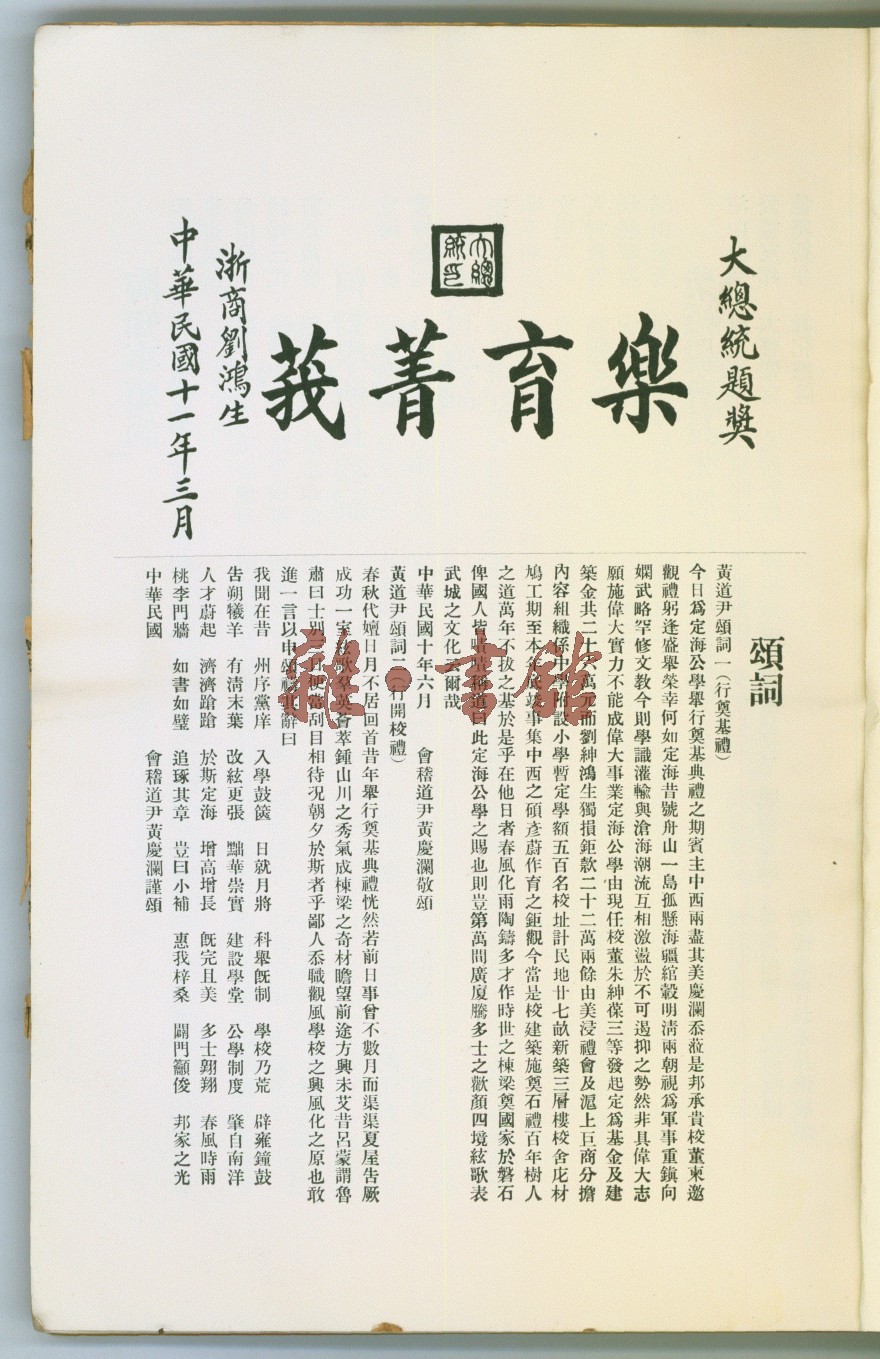 大總統題獎
大總統印
樂育菁莪
浙商劉鴻生
中華民國十一年三月
頌詞
黃道尹頌詞一(行奠基禮)
今日爲定海公學舉行奠基典禮之期賓主中西兩盡其美慶瀾忝涖是邦承貴校董柬邀
觀禮躬逢盛舉榮幸何如定海昔號舟山一島孤懸海疆綰轂明淸兩朝視爲軍事重鎭向
嫻武略罕修文敎今則學識灌輸與滄海潮流互相激盪於不可遏抑之勢然非具偉大志
願施偉大實力不能成偉大事業定海公學由現任校董朱紳葆三等發起定爲基金及建
築金共二十六萬元而劉紳鴻生獨損鉅欵二十二萬兩餘由美浸禮會及滬上巨商分擔
內容組織係中學附設小學暫定學額五百名校址計民地廿七畝新築三層樓校舍庀材
鳩工期至本年底竣事集中西之碩彥蔚作育之鉅觀今當是校建築施奠石禮百年樹人
之道萬年不拔之基於是乎在他日者春風化雨陶鑄多才作時世之棟梁奠國家於磐石
俾國人皆嘖嘖稱道曰此定海公學之賜也則豈第萬間廣廈騰多士之歡顏四境絃歌表
武城之文化云爾哉
中華民國十年六月 會稽道尹黃慶瀾敬頌
黃道尹頌詞二(行開校禮)
春秋代嬗日月不居回首昔年舉行奠基典禮恍然若前日事曾不數月而渠渠夏屋吿厥
成功一室絃歌羣英薈萃鍾山川之秀氣成棟梁之奇材瞻望前途方興未艾昔呂蒙謂魯
肅曰士別三日便當刮目相待况朝夕於斯者乎鄙人忝職觀風學校之興風化之原也敢
進一言以申頌禱其辭曰
我聞在昔 州序黨庠 入學鼓篋 日就月將 科舉旣制 學校乃荒 辟雍鐘鼓
吿朔犧羊 有淸末葉 改絃更張 黜華崇實 建設學堂 公學制度 肇自南洋
人才蔚起 濟濟蹌蹌 於斯定海 增高增長 旣完且美 多士翺翔 春風時雨
桃李門牆 如書如璧 追琢其章 豈曰小補 惠我梓桑 闢門籲俊 邦家之光
中華民國 會稽道尹黃慶瀾謹頌
雜·書館